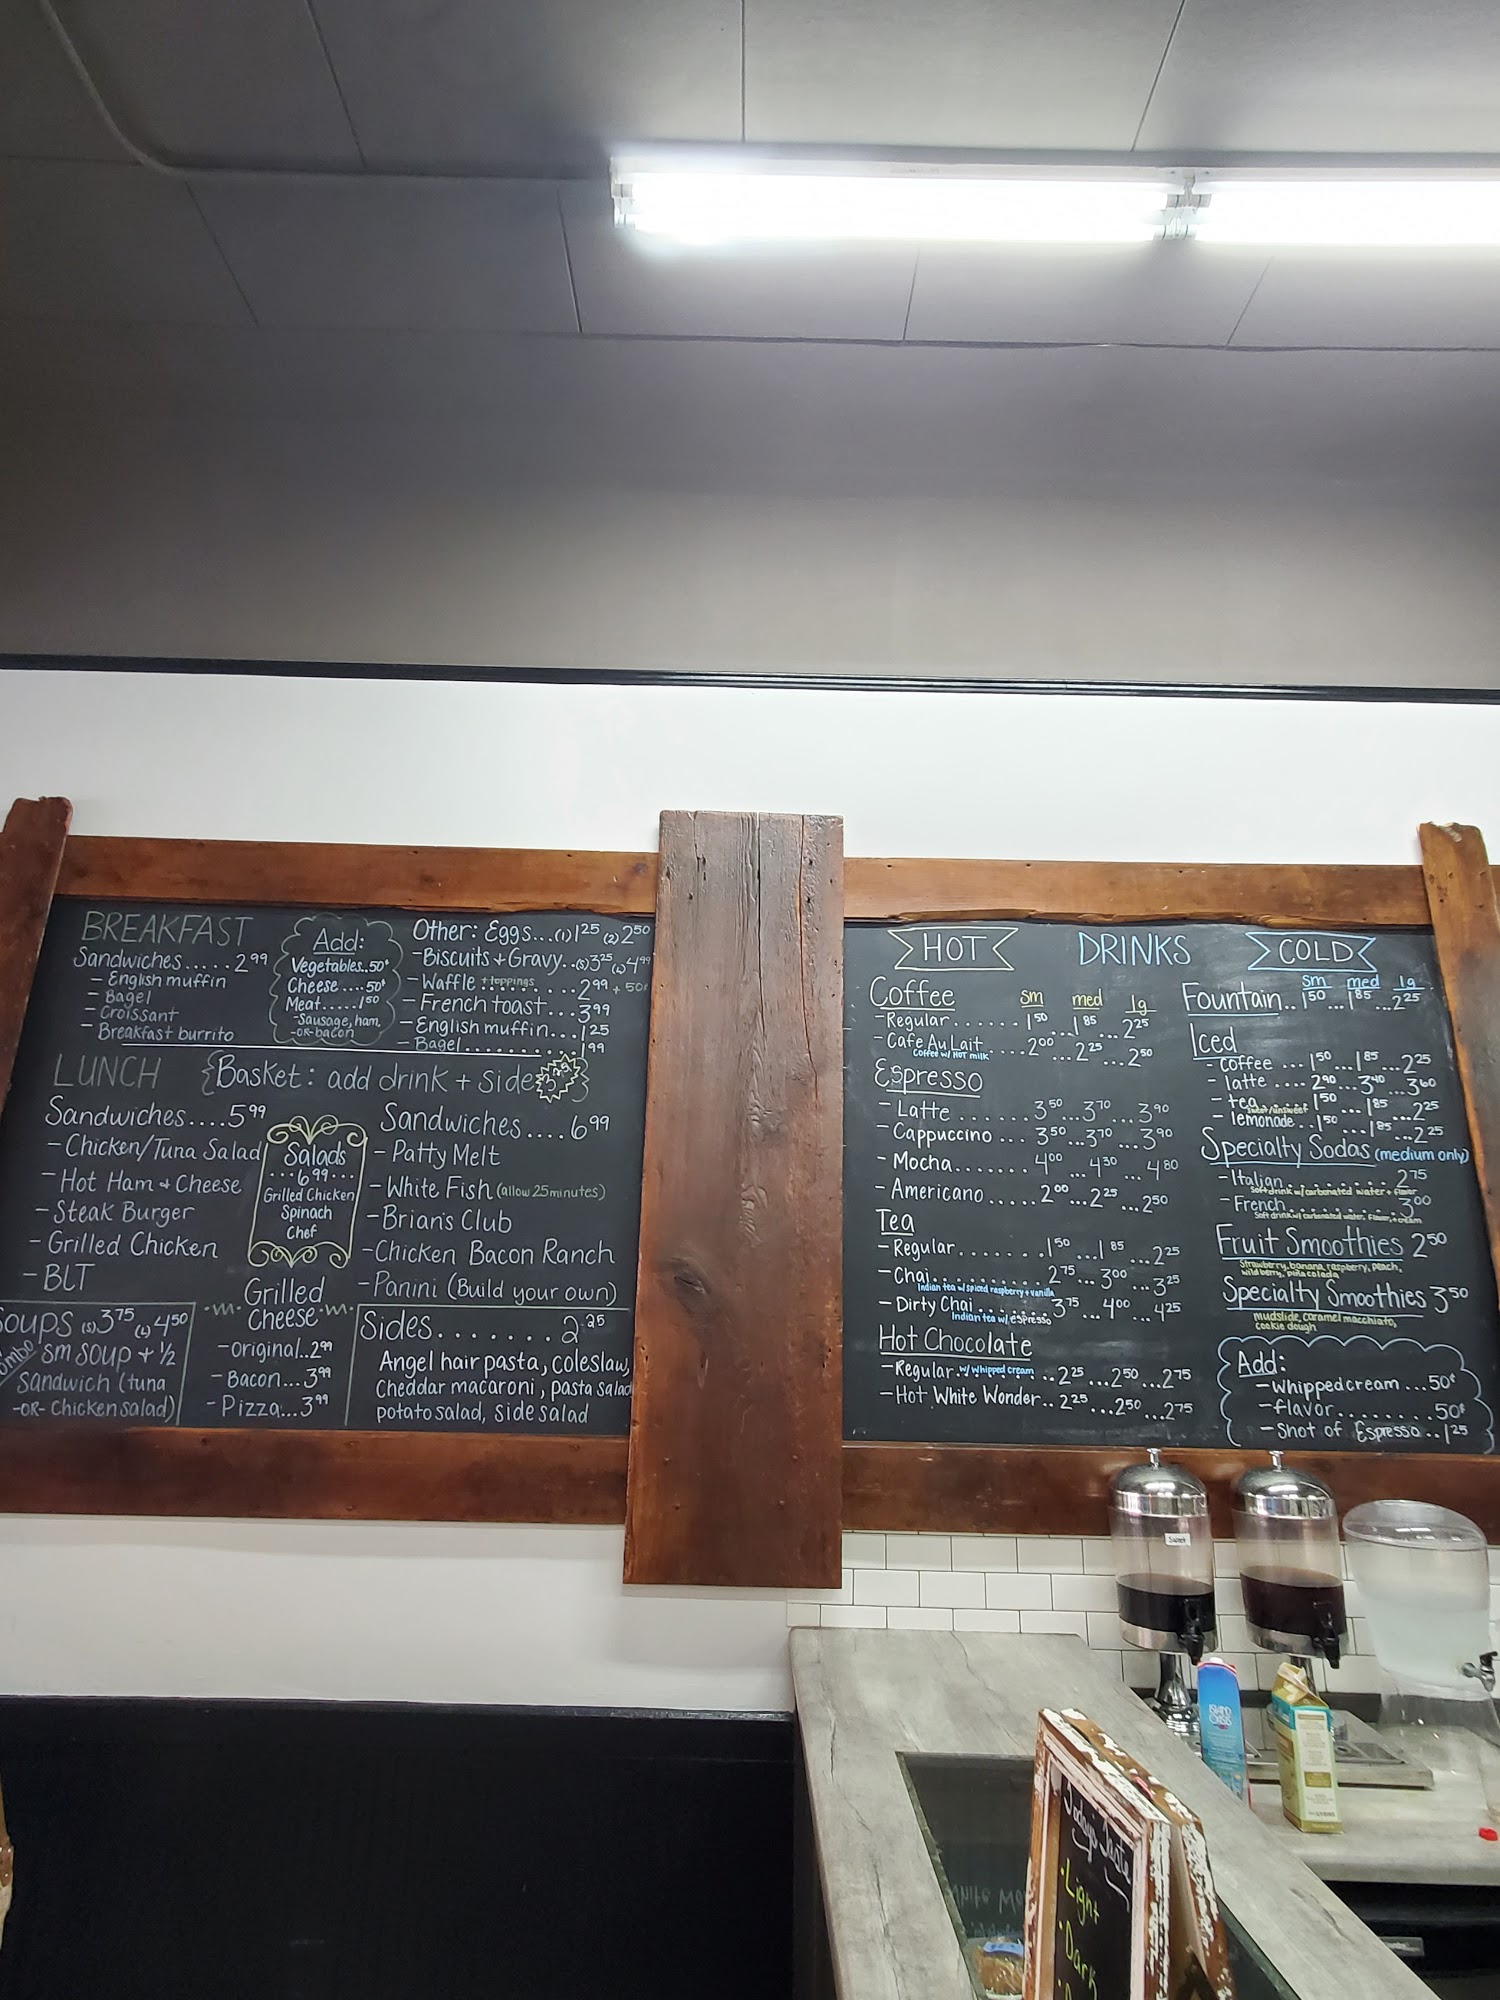 BREAKFAST
Sandwiches.....2⁹⁹
- English muffin
- Bagel
- Croissant
- Breakfast burrito
Add:
Vegetables..50¢
Cheese....50¢
Meat.....1⁵⁰
-Sausage, ham,
-OR- bacon
Other: Eggs...(1)1²⁵ (2)2⁵⁰
-Biscuits + Gravy..(S)3²⁵ (L)4⁹⁹
-Waffle + toppings.......2⁹⁹ + 50¢
-French toast...3⁹⁹
-English muffin...1²⁵
-Bagel..........1⁹⁹
LUNCH
Basket: add drink + side
Sandwiches....5⁹⁹
-Chicken/Tuna Salad
-Hot Ham + Cheese
-Steak Burger
-Grilled Chicken
-BLT
Salads
...6⁹⁹...
Grilled Chicken
Spinach
Chef
Sandwiches....6⁹⁹
-Patty Melt
-White Fish (allow 25 minutes)
-Brian's Club
-Chicken Bacon Ranch
-Panini (Build your own)
Soups (S)3⁷⁵ (L)4⁵⁰
sm soup + ½
Sandwich (tuna
-OR- Chicken salad)
Grilled
Cheese
-original..2⁹⁹
-Bacon...3⁹⁹
-Pizza...3⁹⁹
Sides.......2²⁵
Angel hair pasta, coleslaw,
Cheddar macaroni, pasta salad
potato salad, side salad
DRINKS
HOT
Coffee sm med lg
-Regular......1⁵⁰...1⁸⁵...2²⁵
-Cafe Au Lait....2⁰⁰...2²⁵...2⁵⁰
Coffee w/ Hot milk
Espresso
-Latte.......3⁵⁰...3⁷⁰...3⁹⁰
-Cappuccino...3⁵⁰...3⁷⁰...3⁹⁰
-Mocha.......4⁰⁰...4³⁰...4⁸⁰
-Americano.....2⁰⁰...2²⁵...2⁵⁰
Tea
-Regular.......1⁵⁰...1⁸⁵...2²⁵
-Chai.........2⁷⁵...3⁰⁰...3²⁵
Indian tea w/ spiced raspberry + vanilla
-Dirty Chai......3⁷⁵...4⁰⁰...4²⁵
Indian tea w/ espresso
Hot Chocolate
-Regular w/ whipped cream..2²⁵...2⁵⁰...2⁷⁵
-Hot White Wonder..2²⁵...2⁵⁰...2⁷⁵
COLD
sm med lg
Fountain...1⁵⁰...1⁸⁵...2²⁵
Iced
-coffee...1⁵⁰...1⁸⁵...2²⁵
-latte....2⁹⁰...3⁴⁰...3⁶⁰
-tea......1⁵⁰...1⁸⁵...2²⁵
sweet/unsweet
-lemonade..1⁵⁰...1⁸⁵...2²⁵
Specialty Sodas (medium only)
-Italian.........2⁷⁵
Soft drink w/ carbonated water + flavor
-French.........3⁰⁰
Soft drink w/ carbonated water, flavor, + cream
Fruit Smoothies 2⁵⁰
Strawberry, banana, raspberry, peach,
wildberry, piña colada
Specialty Smoothies 3⁵⁰
mudslide, caramel macchiato,
cookie dough
Add:
-whipped cream...50¢
-flavor.........50¢
-Shot of Espresso..1²⁵
Sweet
ISLAND
OASIS
Today's Taste
·Light
·Dark